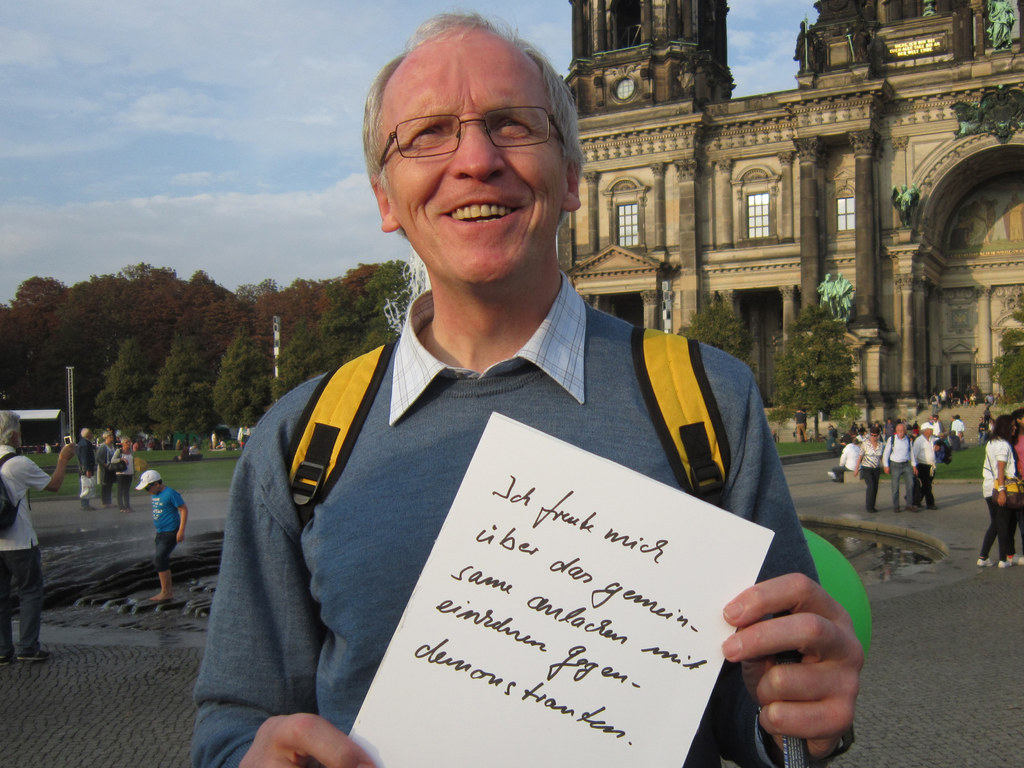 Ich freute mich
über das gemein-
same anlachen mit
einzelnen gegen-
demonstranten.